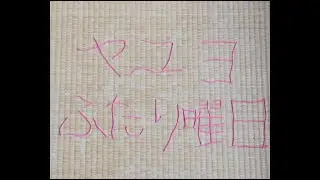 ヤユヨ
ふたり曜日